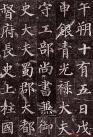 午朔十有五日戊
申銀青光祿大夫
守工部尚書兼御
史大夫
督府長史上柱國